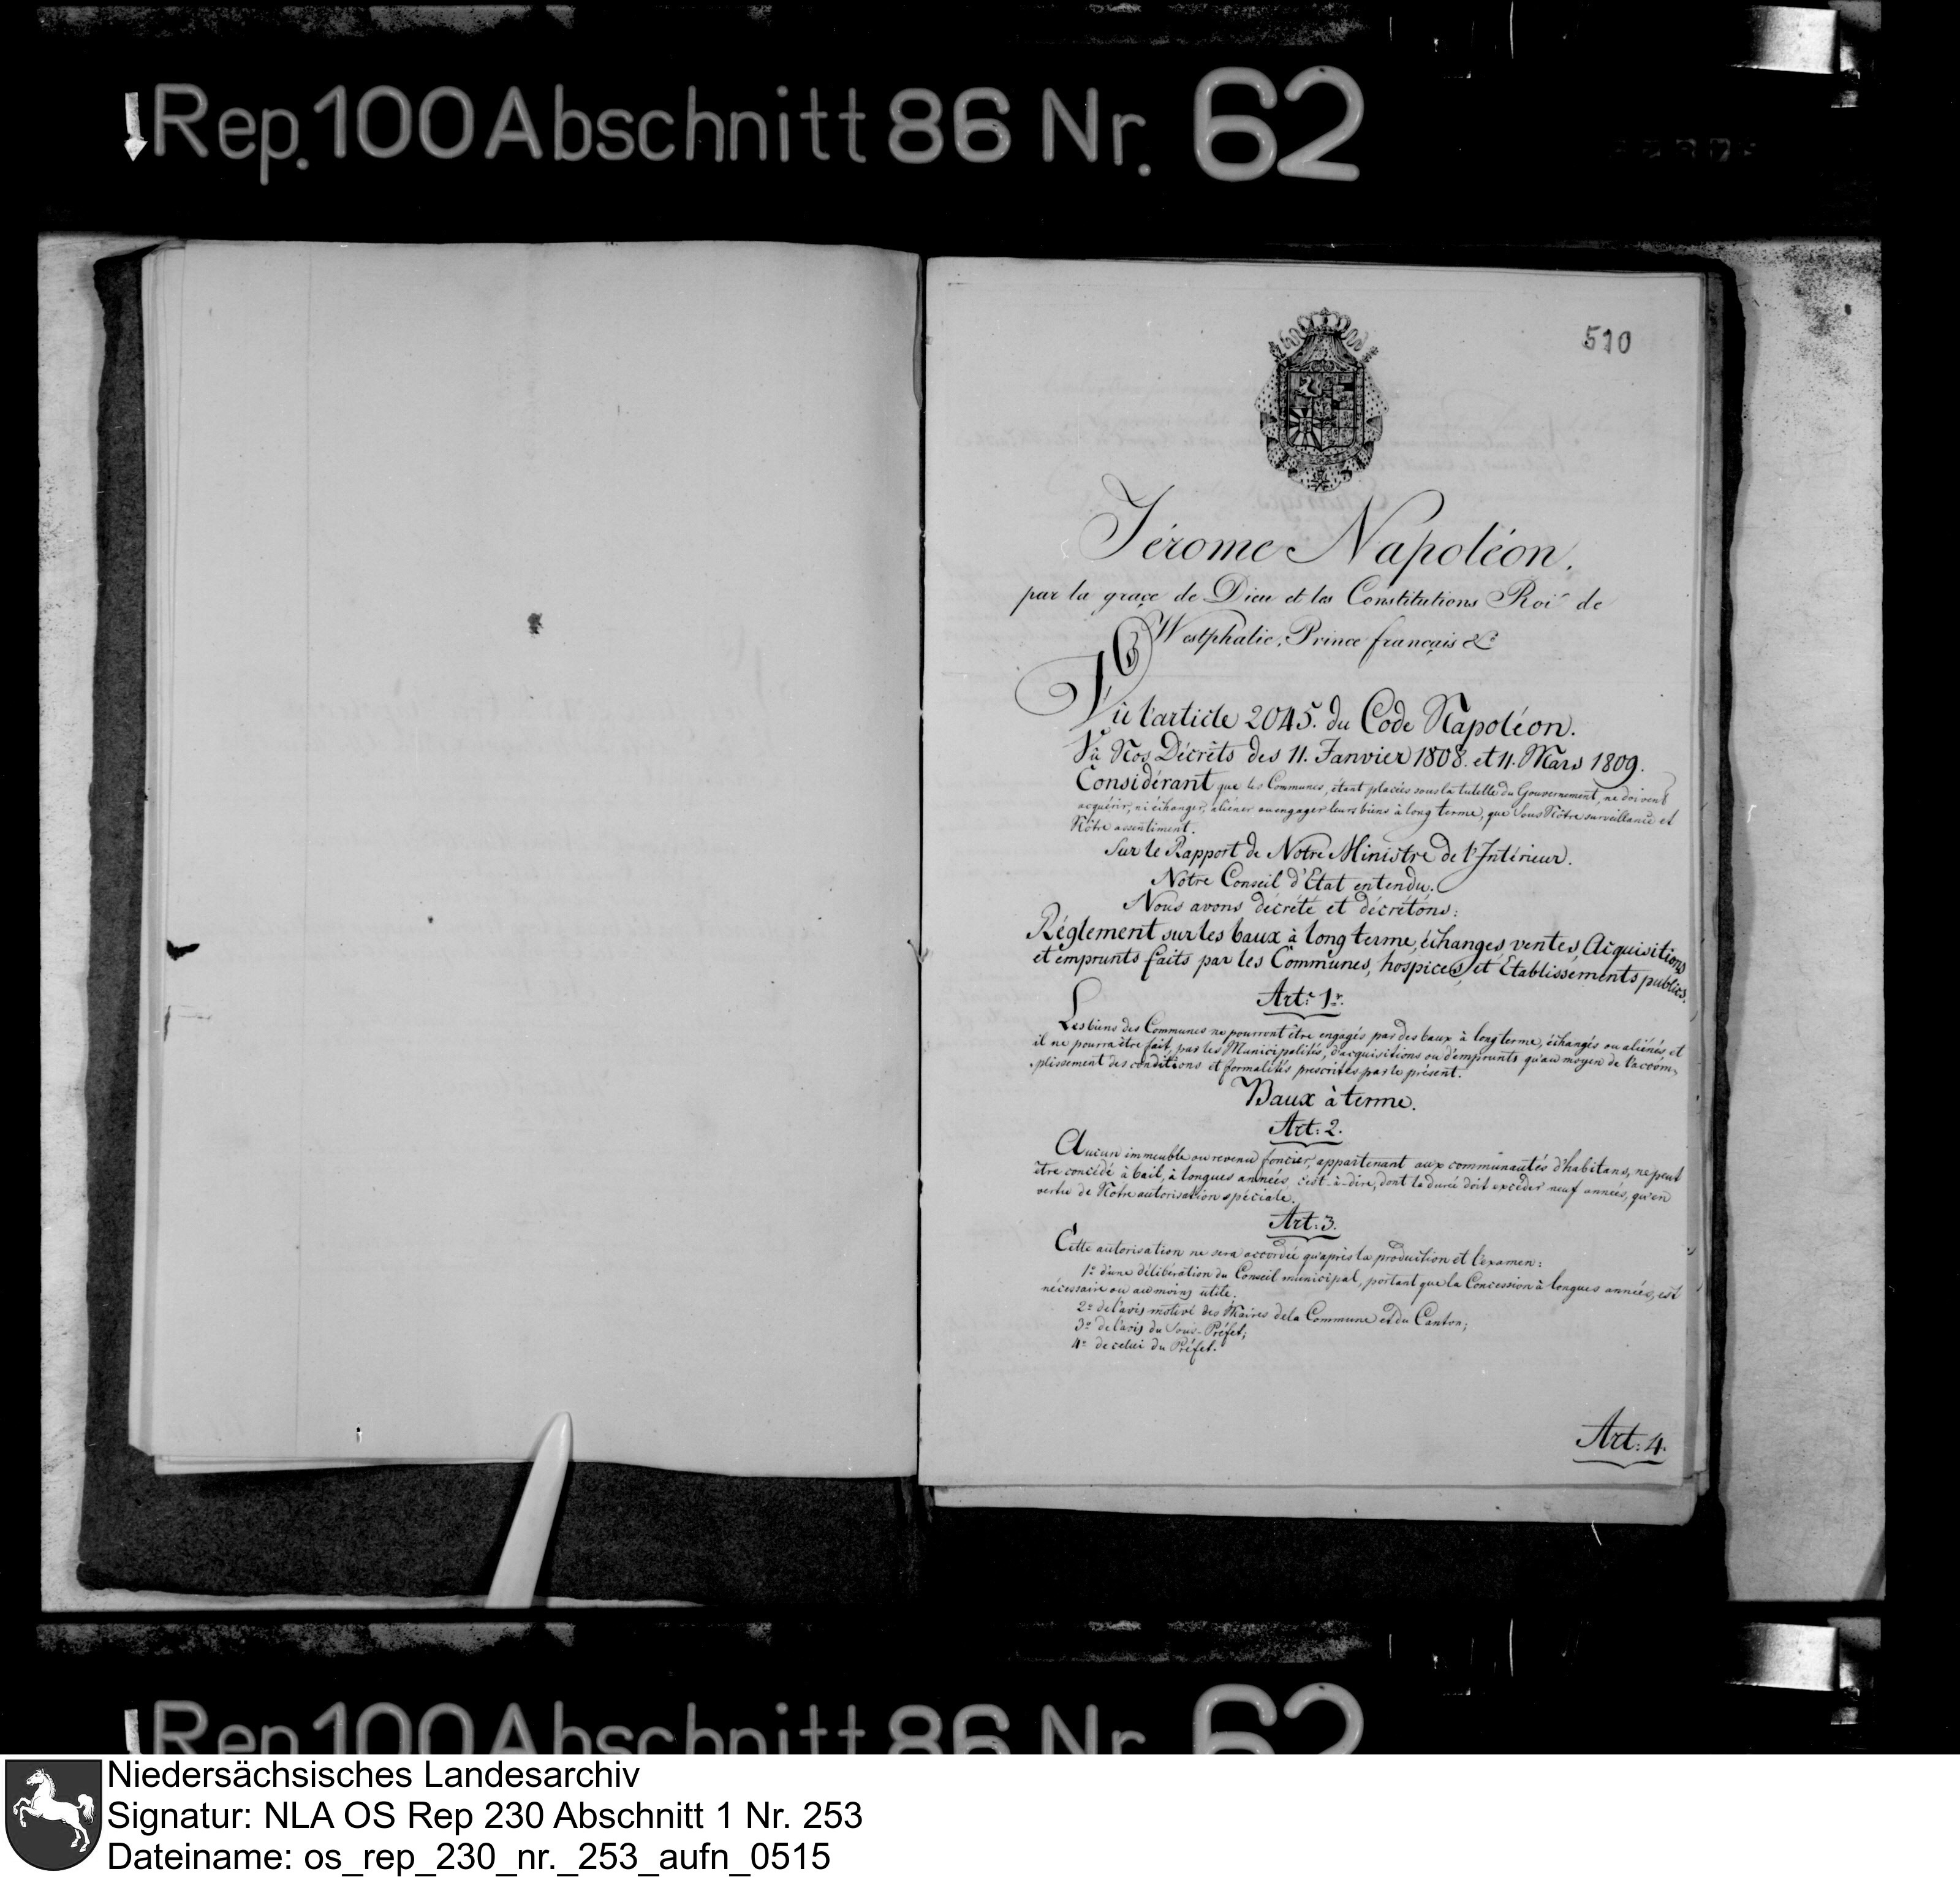 Rep. 100 Abschnitt 86 Nr. 62
510
Jérome Napoléon,
par la grace de Dieu et les Constitutions Roi de
Westphalie, Prince français &c
Vû l'article 2045. du Code Napoléon.
Vû Nos Décrêts des 11. Janvier 1808. et 11. Mars 1809.
Considérant que les Communes, étant placées sous la tutelle du Gouvernement, ne doivent
acquérir, ni échanger, aliéner ou engager leurs biens à long terme, que sous Nôtre surveillance et
Nôtre assentiment.
Sur le Rapport de Notre Ministre de l'Intérieur.
Notre Conseil d'Etat entendu.
Nous avons décrété et décrétons:
Réglement sur les baux à long terme, échanges, ventes, Acquisitions
et emprunts faits par les Communes, hospices, et Etablissements publics.
Art: 1r.
Les biens des Communes ne pourront être engagés par des baux à long terme, échangés ou aliénés et
il ne pourra être fait, par les Municipalités, d'acquisitions ou d'emprunts qu'au moyen de l'accom-
plissement des conditions et formalités prescrites par le présent.
Baux à terme.
Art: 2.
Aucun immeuble ou revenu foncier, appartenant aux communautés d'habitans, ne peut
être concédé à bail, à longues années, c'est-à-dire, dont la durée doit excéder neuf années, qu'en
vertu de Notre autorisation spéciale.
Art: 3.
Cette autorisation ne sera accordée qu'après la production et l'examen:
1o d'une délibération du Conseil municipal, portant que la Concession à longues années, est
nécessaire ou au moins utile.
2o de l'avis motivé des Maires de la Commune et du Canton;
3o de l'avis du Sous-Préfet;
4o de celui du Préfet.
Art: 4.
Rep. 100 Abschnitt 86 Nr. 62
Niedersächsisches Landesarchiv
Signatur: NLA OS Rep 230 Abschnitt 1 Nr. 253
Dateiname: os_rep_230_nr._253_aufn_0515